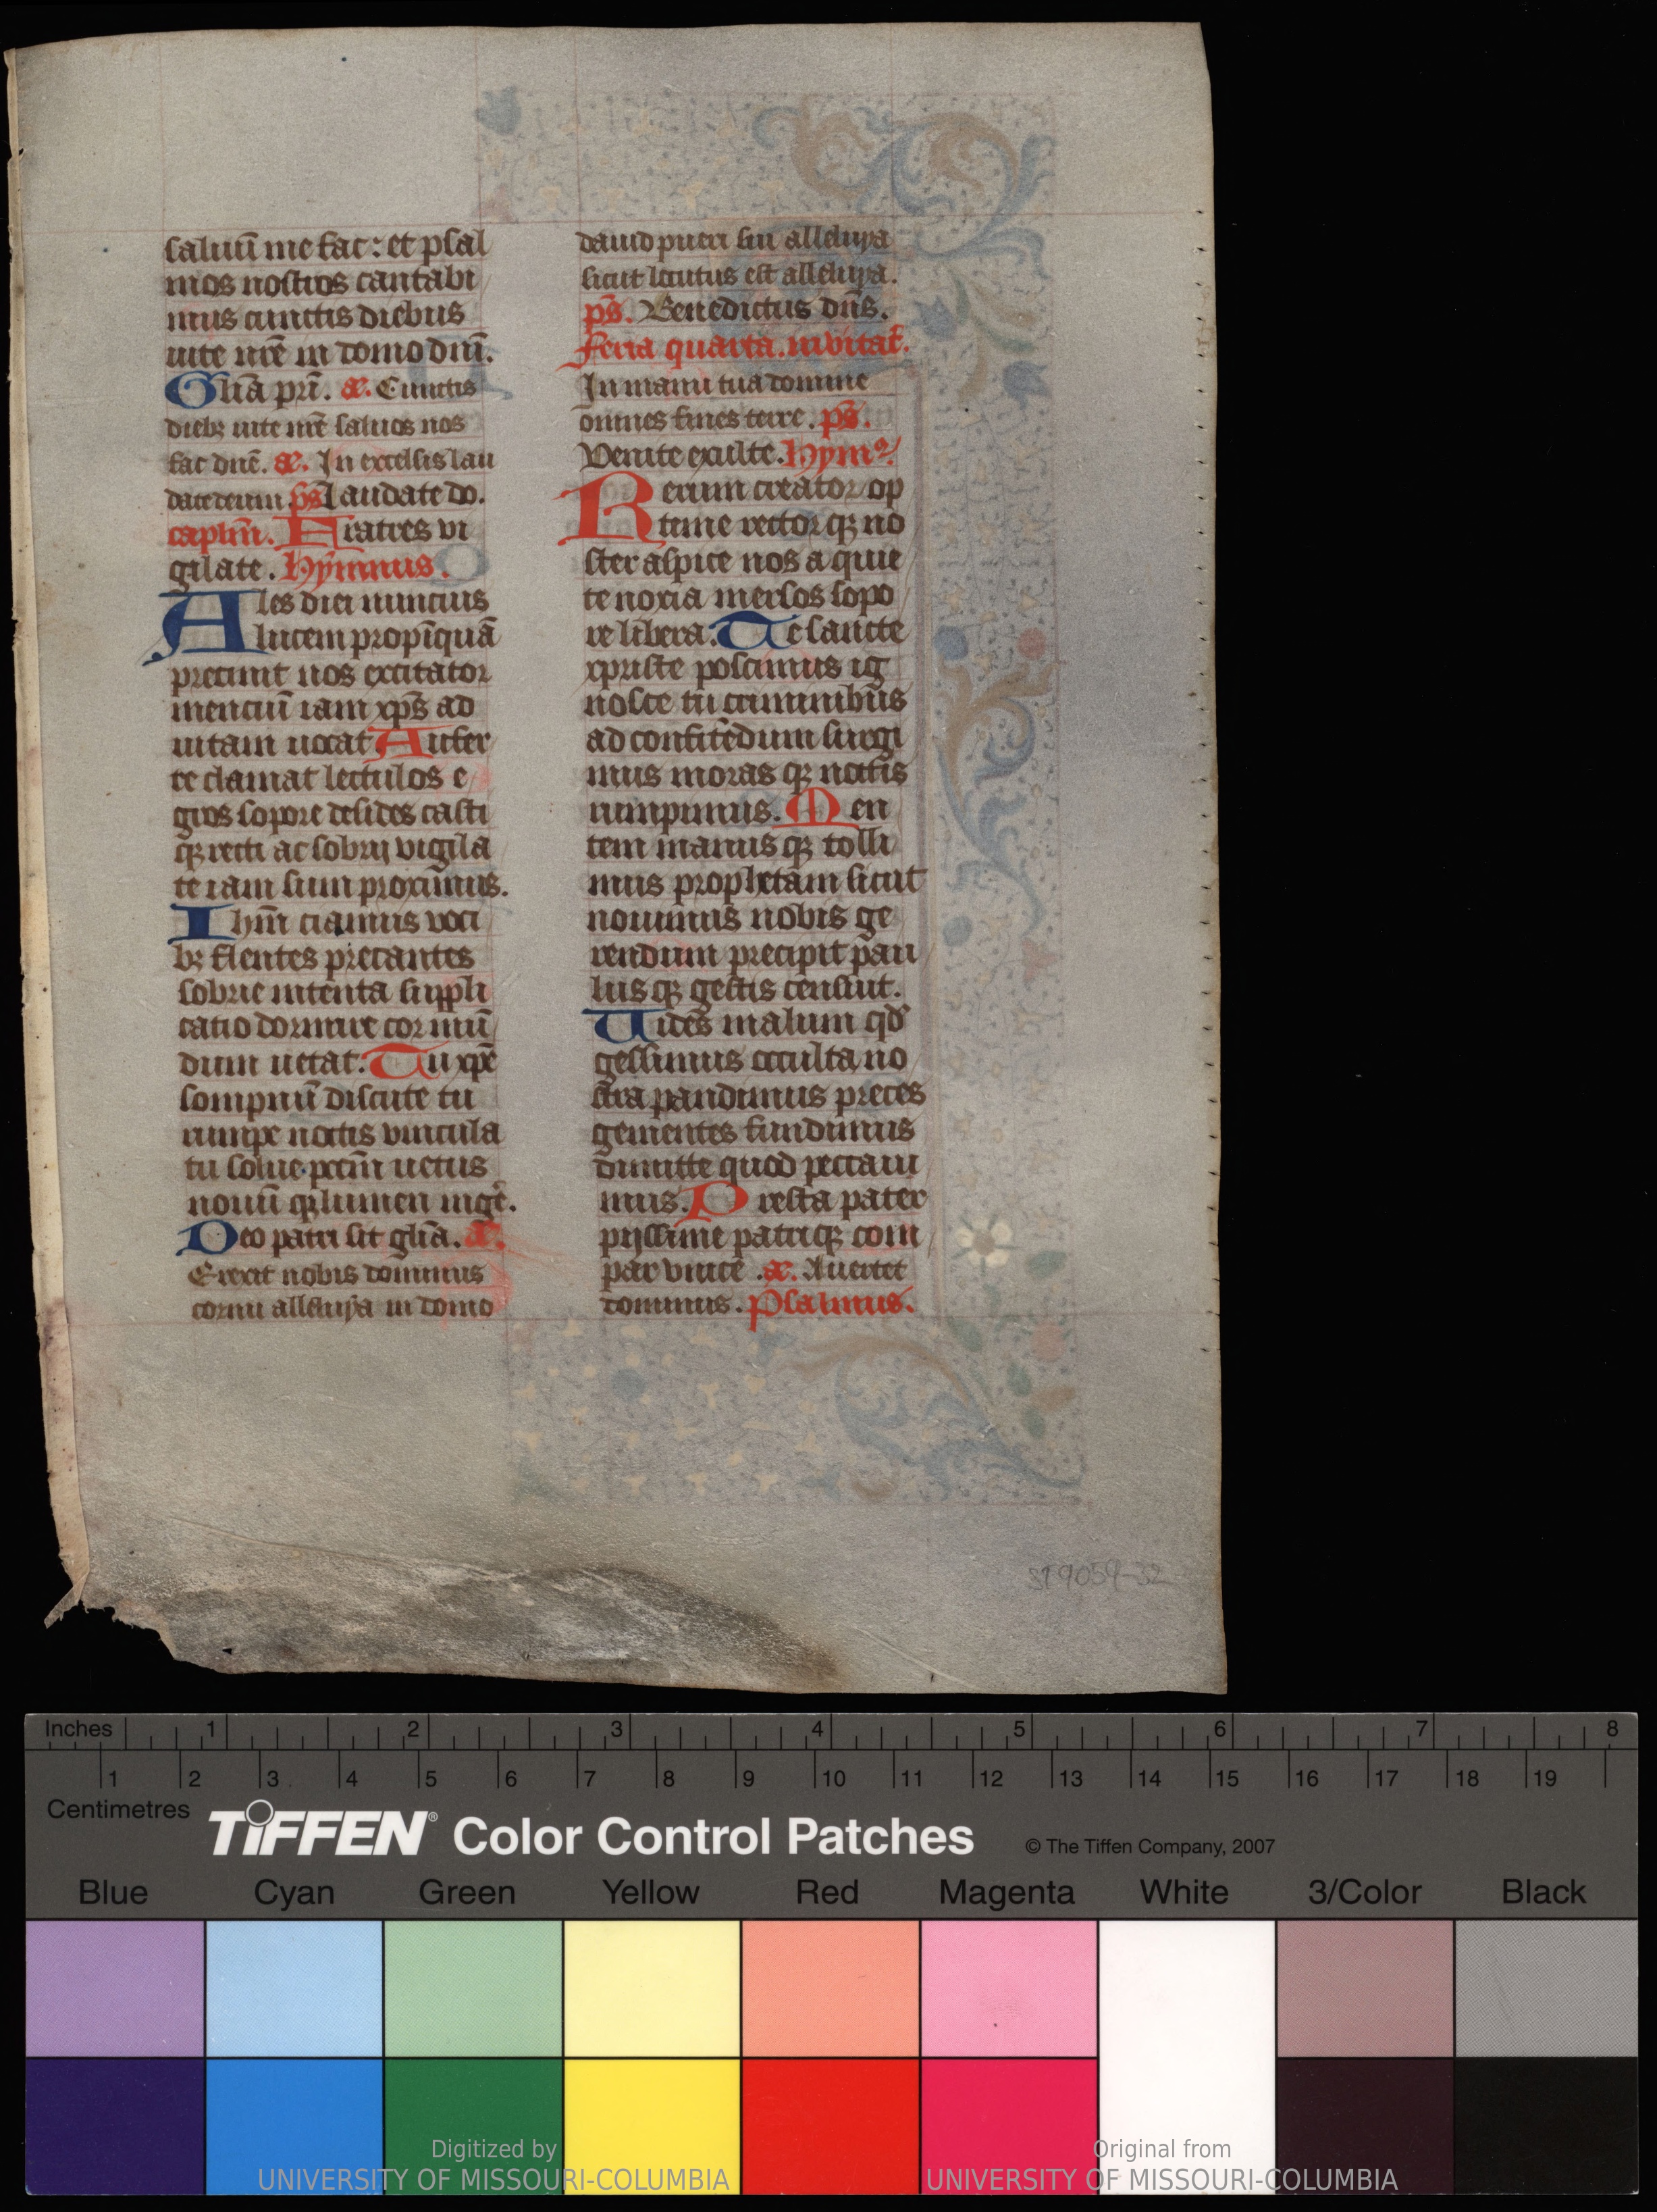 saluū me fac: et psal
mos nostros cantabi
mus cunctis diebus
uite nr̄e in domo dn̄i.
Gl̄ia pr̄i. æ. Cunctis
diebꝫ uite nr̄e saluos nos
fac dn̄e. æ. In excelsis lau
date deum ps̄ Laudate do.
capl̄m. Fratres vi
gilate. Hymnus.
Ales diei nuncius
lucem propīquā
precinit nos excitator
menciū iam xp̄s ad
uitam uocat Aufer
te clamat lectulos e
gros sopore desides casti
qꝫ recti ac sobrij vigila
te iam sum proximus.
Ihm̄ ciamus voci
bꝫ flentes precantes
sobrie intenta suppli
catio dormire cor mū
dum uetat: Tu xp̄e
sompnū discute tu
rumpe noctis vincula
tu solue pctm̄ uetus
nouū qꝫ lumen inge.
Deo patri sit gl̄ia. æ.
Erexit nobis dominus
cornu alleluya in domo
dauid pueri sui alleluya
sicut locutus est alleluya.
ps̄. Benedictus dn̄s.
Feria quarta. invitat.
In manu tua domine
omnes fines terre. ps̄.
Venite exulte. Hym9
Rerum creator op
time rector qꝫ no
ster aspice nos a quie
te noxia mersos sopo
re libera. Te sancte
xpriste poscimus ig
nosce tu criminibus
ad confitēdum surgi
mus moras qꝫ noctis
rumpimus. Men
tem manus qꝫ tolli
mus prophetam sicut
nouimus nobis ge
rendum precipit pau
lus qꝫ gestis censuit.
Uides malum qd
gessimus occulta no
stra pandimus preces
gementes fundimus
dimitte quod peccaui
mus. Presta pater
pijssime patri qꝫ com
par vnice. æ. Auertet
dominus. Psalmus.
ST9059-32
Inches 1 2 3 4 5 6 7 8
1 2 3 4 5 6 7 8 9 10 11 12 13 14 15 16 17 18 19
Centimetres
TIFFEN® Color Control Patches © The Tiffen Company, 2007
Blue Cyan Green Yellow Red Magenta White 3/Color Black
Digitized by Original from
UNIVERSITY OF MISSOURI-COLUMBIA UNIVERSITY OF MISSOURI-COLUMBIA